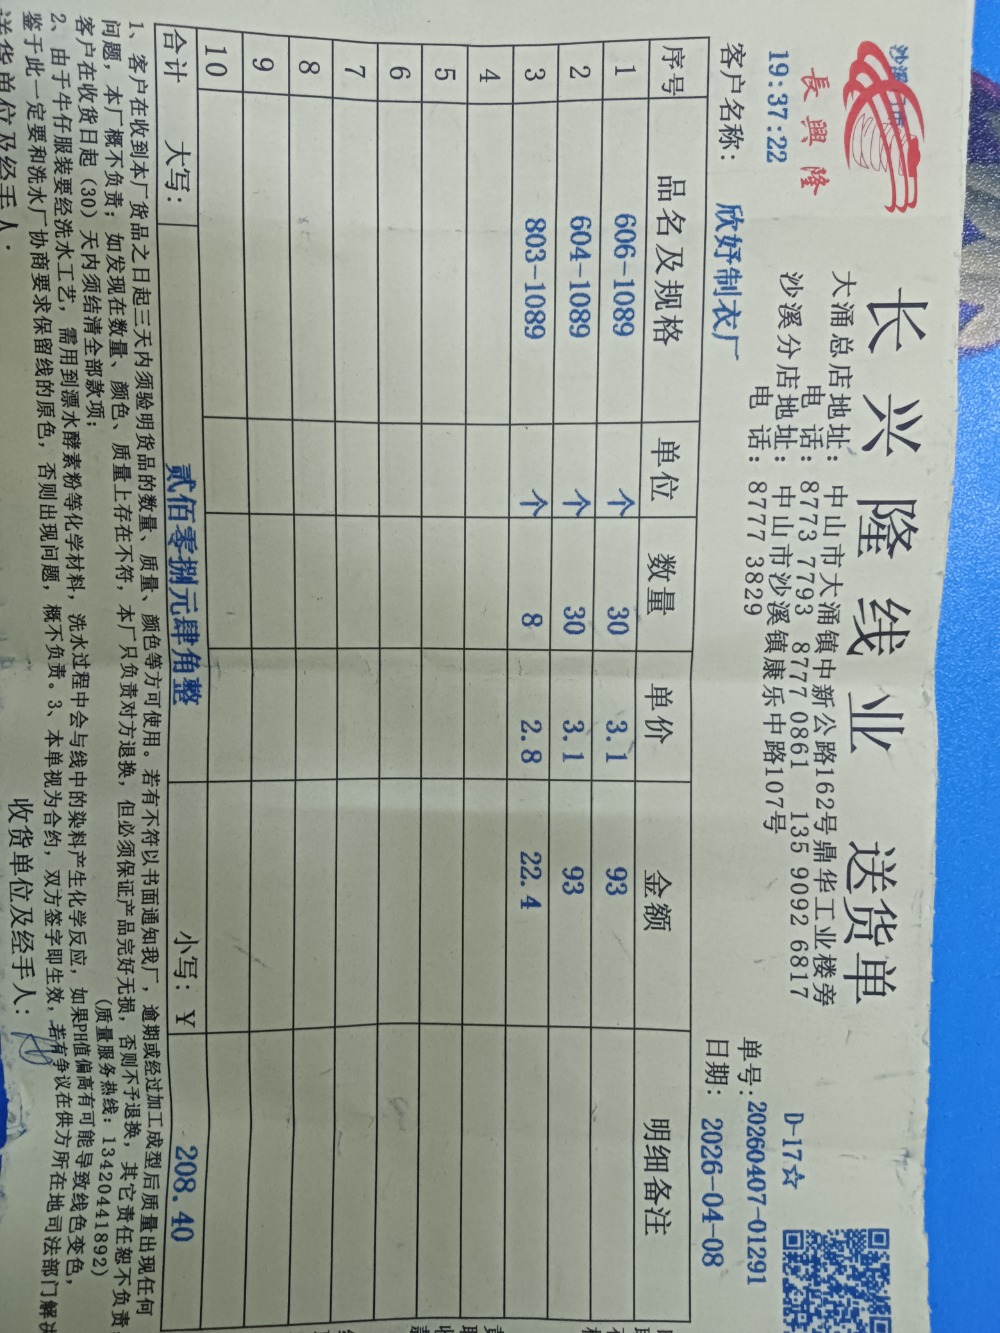 長興隆
长兴隆线业 送货单
D-17☆
大涌总店地址: 中山市大涌镇中新公路162号鼎华工业楼旁
电 话: 8773 7793 8777 0861 135 9092 6817
沙溪分店地址: 中山市沙溪镇康乐中路107号
电 话: 8777 3829
19:37:22
单号: 20260407-01291
客户名称: 欣妤制衣厂 日期: 2026-04-08
序号 品名及规格 单位 数量 单价 金额 明细备注
1 606-1089 个 30 3.1 93
2 604-1089 个 30 3.1 93
3 803-1089 个 8 2.8 22.4
4
5
6
7
8
9
10
合计 大写: 贰佰零捌元肆角整 小写: ¥ 208.40
1、客户在收到本厂货品之日起三天内须验明货品的数量、质量、颜色等方可使用。若有不符以书面通知我厂,逾期或经过加工成型后质量出现任何
问题,本厂概不负责;如发现在数量、颜色、质量上存在不符,本厂只负责对方退换,但必须保证产品完好无损,否则不予退换,其它责任恕不负责;
客户在收货日起(30)天内须结清全部款项; (质量服务热线: 13420441892)
2、由于牛仔服装要经洗水工艺,需用到漂水酵素粉等化学材料,洗水过程中会与线中的染料产生化学反应,如果PH值偏高有可能导致线色变色,
鉴于此一定要和洗水厂协商要求保留线的原色,否则出现问题,概不负责。3、本单视为合约,双方签字即生效,若有争议在供方所在地司法部门解决
送货单位及经手人: 收货单位及经手人: